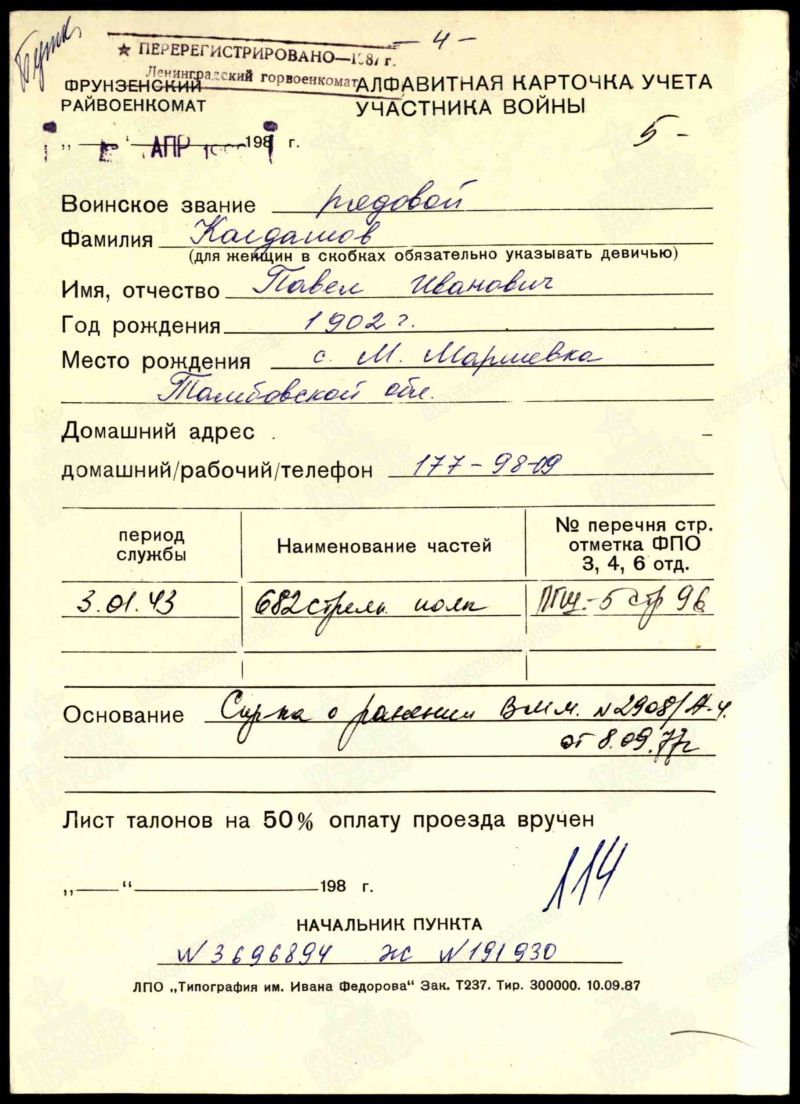 - 4 -
★ ПЕРЕРЕГИСТРИРОВАНО—198 г.
Ленинградский горвоенкомат
ФРУНЗЕНСКИЙ
РАЙВОЕНКОМАТ
АЛФАВИТНАЯ КАРТОЧКА УЧЕТА
УЧАСТНИКА ВОЙНЫ
5 -
„ “ АПР 198 г.
Воинское звание рядовой
Фамилия Калдашов
(для женщин в скобках обязательно указывать девичью)
Имя, отчество Павел Иванович
Год рождения 1902 г.
Место рождения с. М.
Тамбовской обл.
Домашний адрес
домашний/рабочий/телефон 177-98-09
период службы
Наименование частей
№ перечня стр. отметка ФПО 3, 4, 6 отд.
3.01.43 682 стрелк. полк ППШ-5 стр 96
Основание Спр-ка о ранении ВММ. N2908/А-ч.
от 8.09.77г
Лист талонов на 50% оплату проезда вручен
114
„ “ 198 г.
НАЧАЛЬНИК ПУНКТА
N3696894 Ж N191930
ЛПО „Типография им. Ивана Федорова“ Зак. Т237. Тир. 300000. 10.09.87